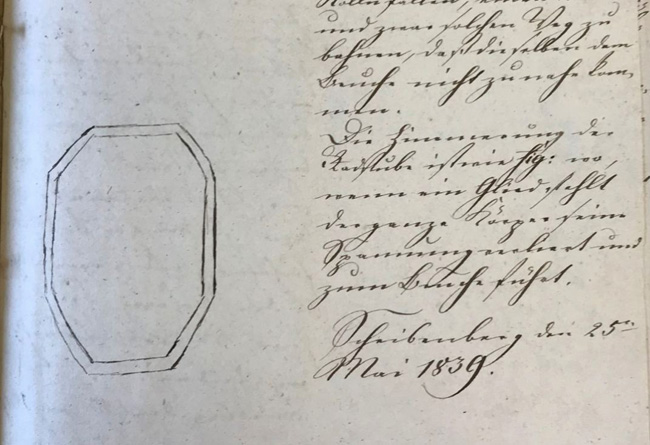 und zwar solchen Weg zu
bahnen, daß dieselben dem
Bruche nicht zu nahe kom-
men.
Die Zimmerung der
Radstube ist wie fig: wo,
wenn ein Glied fehlt
der ganze Körper seine
Spannung verliert und
zum Bruche führt.
Scheibenberg den 25ten
Mai 1839.